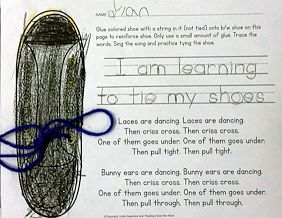 NAME Dylan
Glue colored shoe with a string in it (not tied) onto b/w shoe on this
page to reinforce shoe. Only use a small amount of glue. Trace the
words. Sing the song and practice tying the shoe.
I am learning
to tie my shoes
Laces are dancing. Laces are dancing.
Then criss cross. Then criss cross.
One of them goes under. One of them goes under.
Then pull tight. Then pull tight.
Bunny ears are dancing. Bunny ears are dancing.
Then criss cross. Then criss cross.
One of them goes under. One of them goes under.
Then pull through. Then pull through.